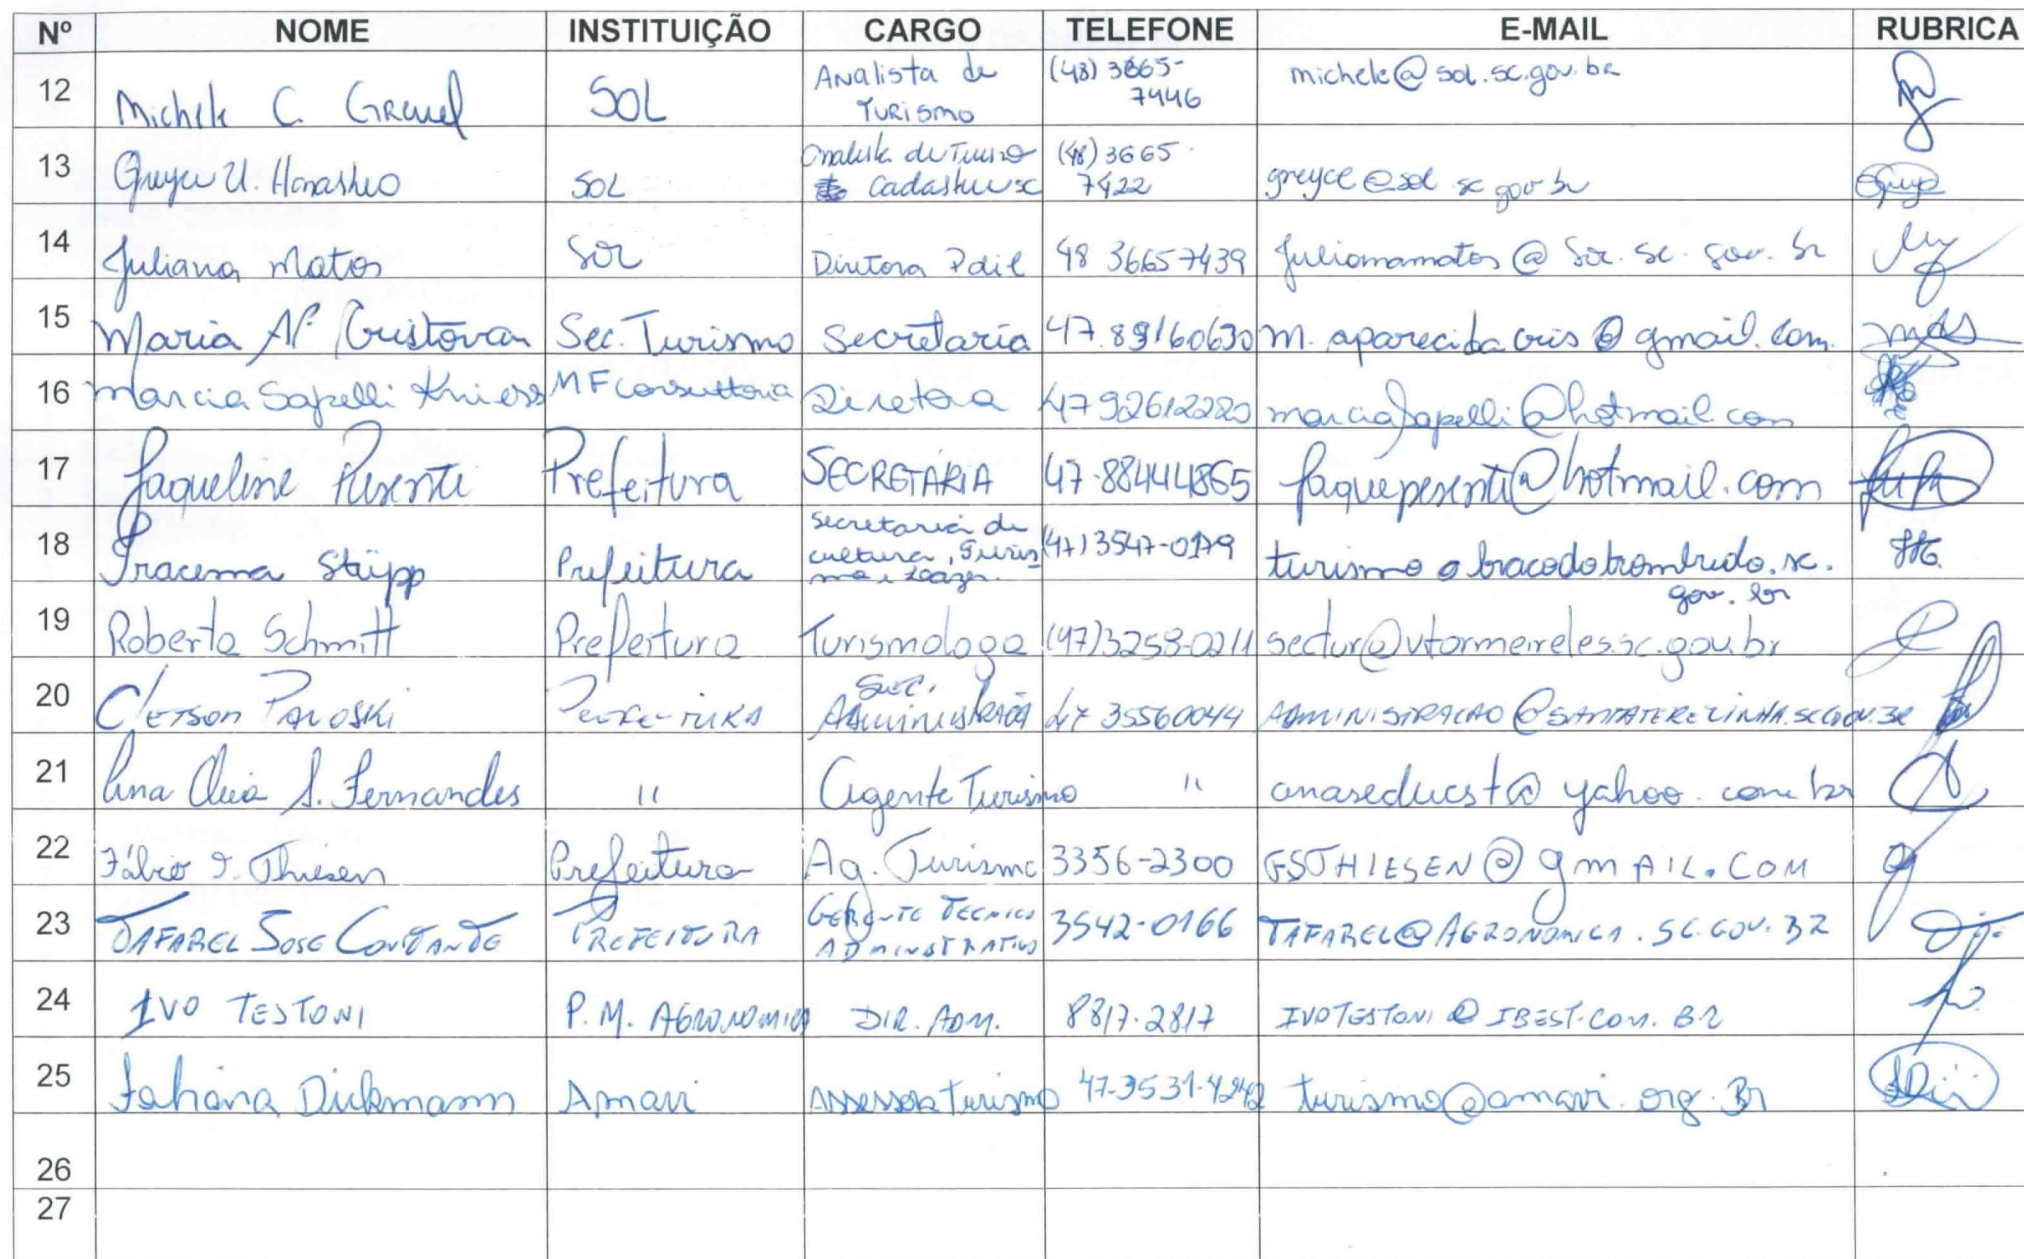 Nº NOME INSTITUIÇÃO CARGO TELEFONE E-MAIL RUBRICA
12 Michele C. Greuel SOL Analista de Turismo (48) 3665-7446 michele@sol.sc.gov.br
13 Greyce U. SOL Analista de Turismo Cadastur SC (48) 3665-7422 greyce@sol.sc.gov.br
14 Juliana Matos Sol Diretora 48 36657439 julianamatos@sol.sc.gov.br
15 Maria Ap. Cristovan Sec. Turismo Secretaria 47.89160630 m.aparecidacris@gmail.com.
16 Marcia Sapelli Kniess MF Consultoria Diretora 47 92612220 marciasapelli@hotmail.com
17 Jaqueline Pesenti Prefeitura SECRETÁRIA 47-88444865 jaquepesenti@hotmail.com
18 Iracema Stüpp Prefeitura Secretaria de cultura, Turismo e Lazer. (47) 3547-0179 turismo@bracodotrombudo.sc.gov.br
19 Roberta Schmitt Prefeitura Turismologa (47)3258-0211 sectur@vitormeireles.sc.gov.br
20 Cleison Prefeitura Sec. Administração 47 35560044 ADMINISTRACAO@SANTATEREZINHA.SC.GOV.BR
21 Ana S. Fernandes " Agente Turismo " anaseducst@yahoo.com.br
22 Fábio J. Thiesen Prefeitura Ag. Turismo 3356-2300 FSTHIESEN@gmAIL.COM
23 TAFAREL JOSE PREFEITURA GERENTE TECNICO ADMINISTRATIVO 3542-0166 TAFAREL@AGRONOMICA.SC.GOV.BR
24 IVO TESTONI P.M. AGRONOMICA DIR. ADM. 8817-2817 IVOTESTONI@IBEST.COM.BR
25 Fabiana Dickmann Amavi Assessora Turismo 47-3531-4242 turismo@amavi.org.Br
26
27